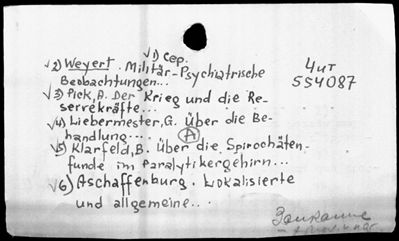 √1) Cep.
√2) Weyert. Militär-Psychiatrische
Beobachtungen...
4ит
554087
√3) Pick, A. Der Krieg und die Re-
serrekräfte...
√4) Liebermester, G. über die Be-
handlung... (A)
√5) Klarfeld, B. über die Spirochäten-
funde im Paralytikergehirn...
√6) Aschaffenburg. Lokalisierte
und allgemeine...